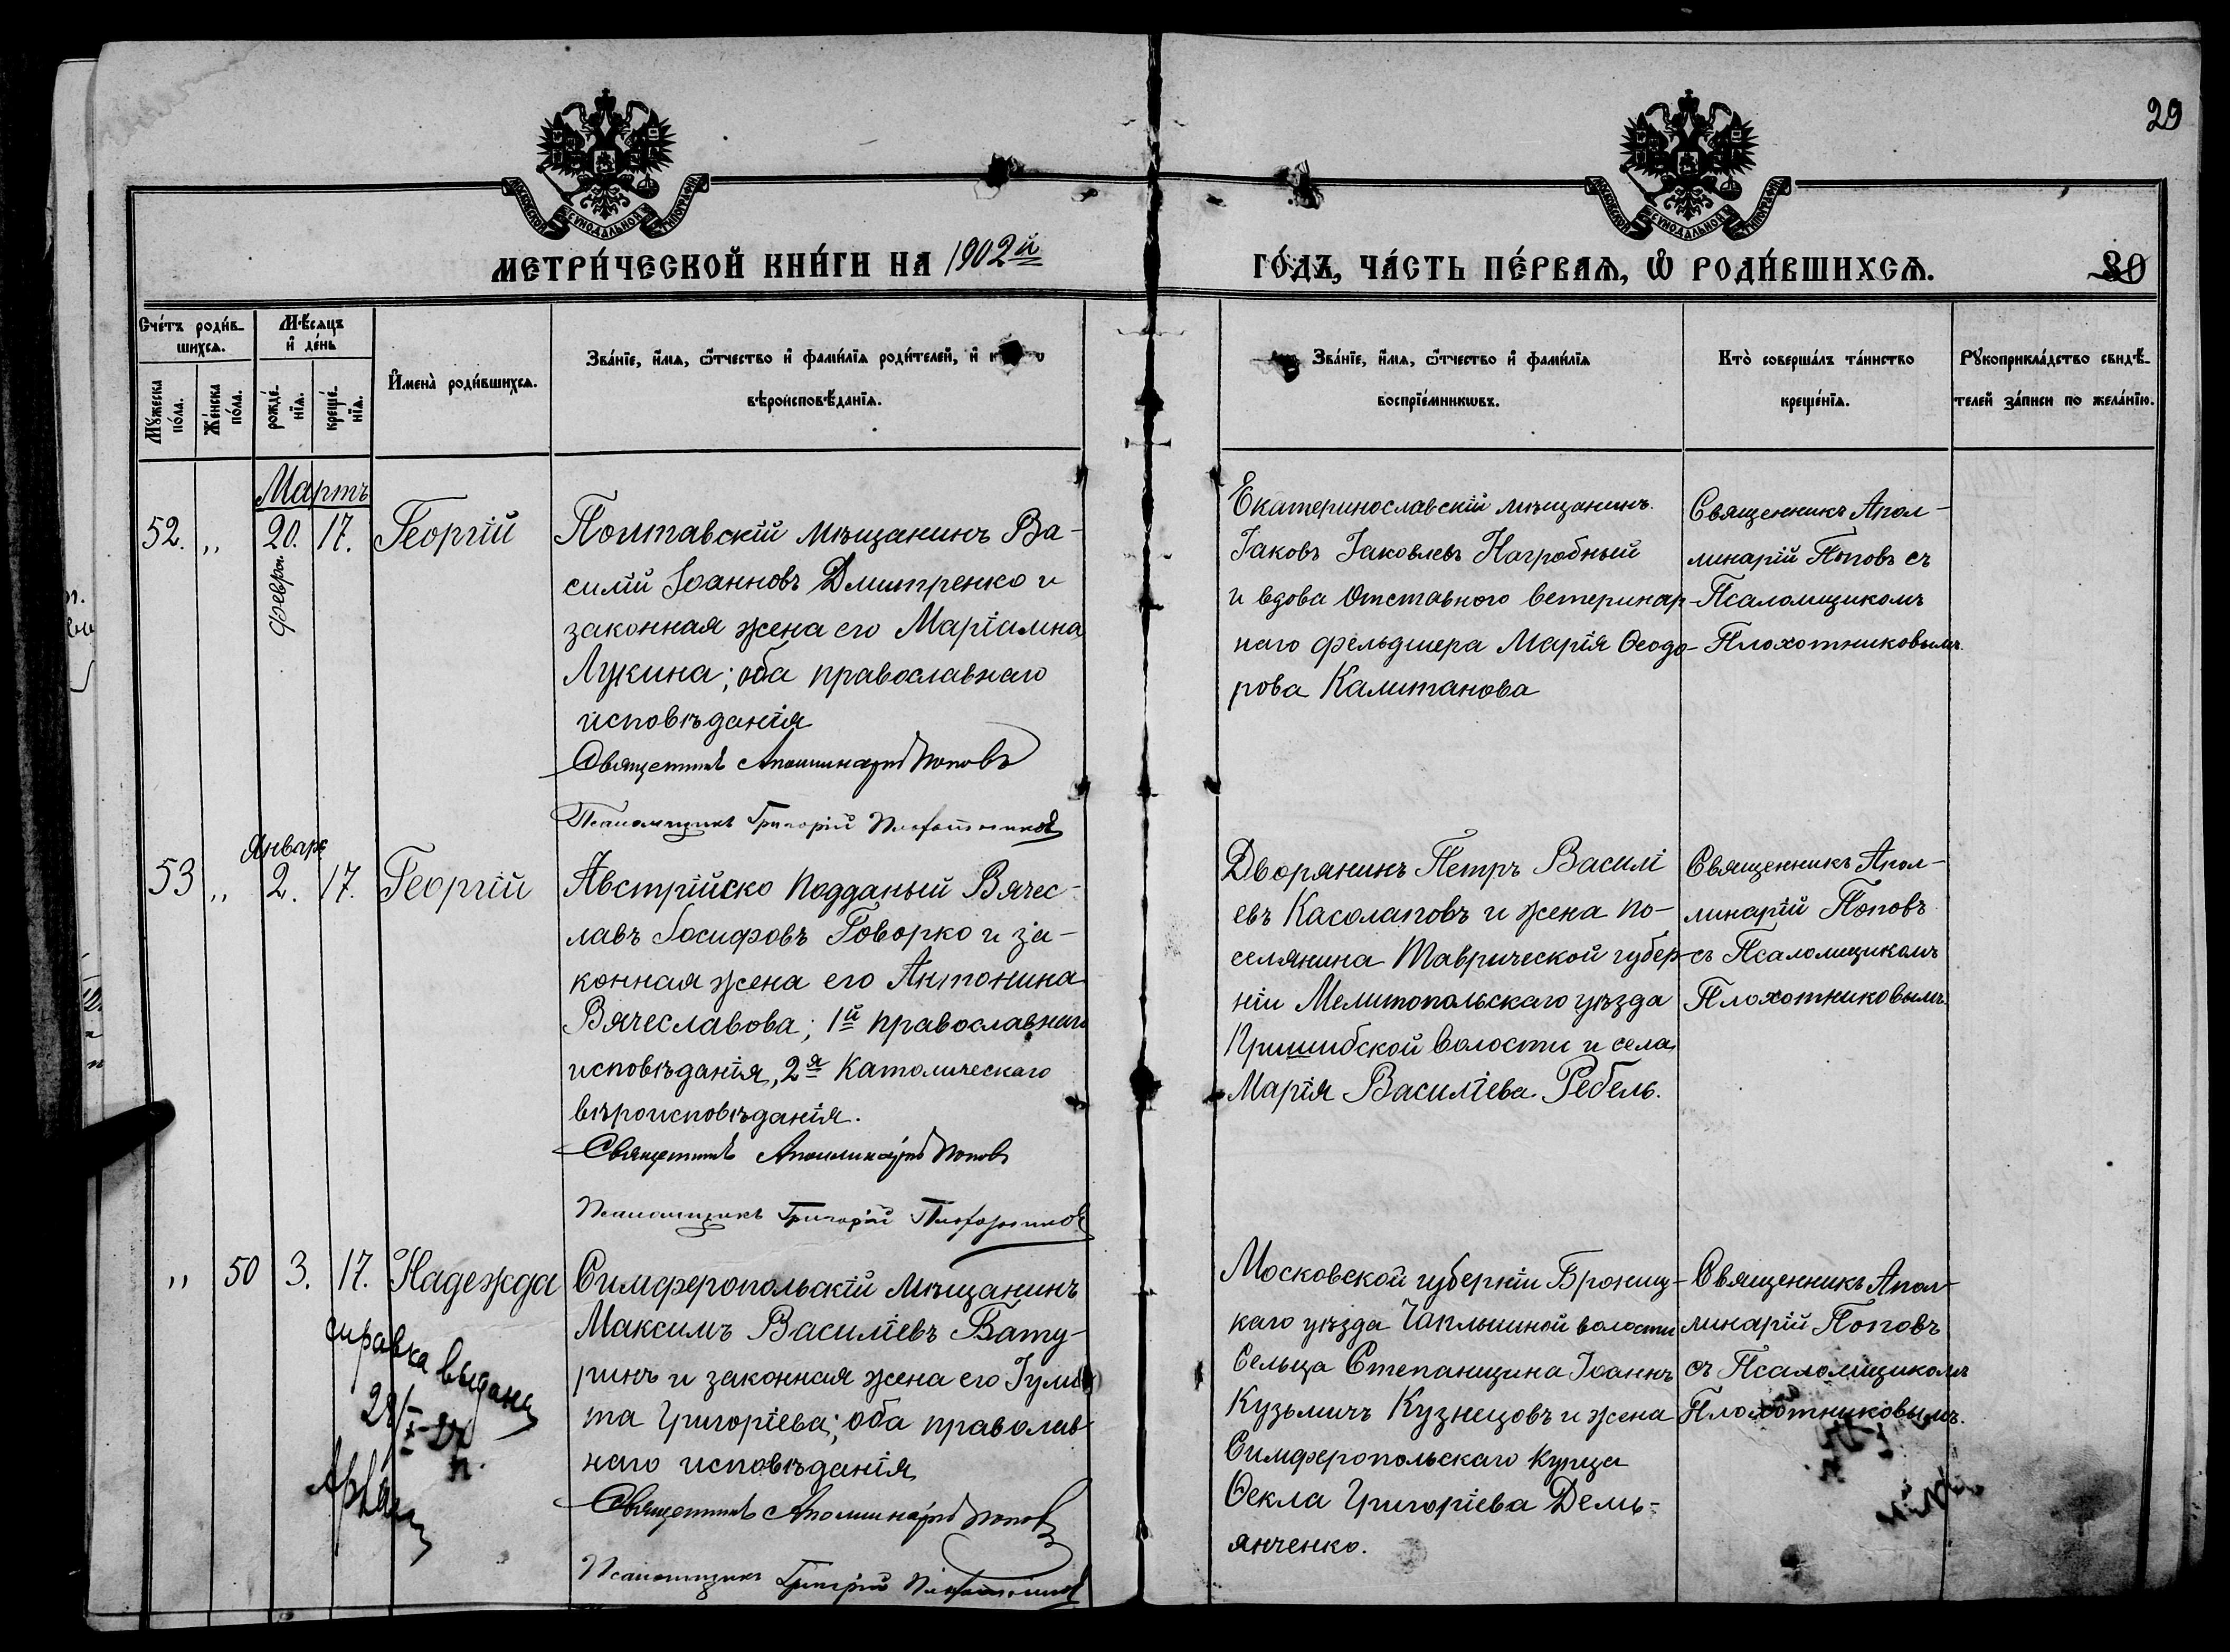 29
МЕТРИ́ЧЕСКОЙ КНИ́ГИ НА 1902й
ГО́ДЪ, ЧА́СТЬ ПЕ́РВАЯ, Ѡ҆ РОДИ́ВШИХСЯ.
30
МОСКОВСКОЙ СѴНОДАЛЬНОЙ ТИПОГРАФІИ
МОСКОВСКОЙ СѴНОДАЛЬНОЙ ТИПОГРАФІИ
Сче́тъ роди́в-
шихся.
Мꙋ́жеска
по́ла.
Же́нска
по́ла.
Мѣ́сяцъ
и҆ де́нь
рожде́-
нїя.
креще́-
нїя.
И҆мена̀ роди́вшихся.
Зва́нїе, и҆́мя, ѻ҆́тчество и҆ фами́лїя роди́телей, и҆
вѣроисповѣ́данїя.
Зва́нїе, и҆́мя, ѻ҆́тчество и҆ фами́лїя
воспрїе́мникѡвъ.
Кто̀ соверша́лъ та́инство
креще́нїя.
Рꙋкоприкла́дство свидѣ́-
телей за́писи по жела́нїю.
Мартъ
52. „ 20. 17. Георгій
Февра.
Полтавскій мѣщанинъ Ва-
силій Іоанновъ Дмитренко и
законная жена его Маріамна
Лукина; оба православнаго
исповѣданія
Священникъ Аполлинарій Поповъ
Псаломщикъ Григорій Плохотниковъ
Екатеринославскій мѣщанинъ
Іаковъ Іаковлевъ Нагробный
и вдова отставного ветеринар-
наго фельдшера Марія Ѳеодо-
рова Калитанова
Священникъ Апол-
линарій Поповъ съ
Псаломщикомъ
Плохотниковымъ.
Январь
53 „ 2. 17. Георгій
Австрійско подданый Вячес-
лавъ Іосифовъ Говорко и за-
конная жена его Антонина
Вячеславова; 1й православнаго
исповѣданія, 2я католическаго
вѣроисповѣданія.
Священникъ Аполлинарій Поповъ
Псаломщикъ Григорій Плохотниковъ
Дворянинъ Петръ Василі
евъ Касолаповъ и жена по-
селянина Таврической губер-
ніи Мелитопольскаго уѣзда
Пришибской волости и села
Марія Василіева Ребель.
Священникъ Апол-
линарій Поповъ
съ Псаломщикомъ
Плохотниковымъ.
„ 50 3. 17. Надежда
справка выдана
28/X
Симферопольскій мѣщанинъ
Максимъ Василіевъ Бату-
ринъ и законная жена его Іули
та Григоріева; оба праволав-
наго исповѣданія
Священникъ Аполлинарій Поповъ
Псаломщикъ Григорій Плохотниковъ
Московской губерніи Бронниц-
каго уѣзда волости
Сельца Степанщина Іоаннъ
Кузьмичъ Кузнецовъ и жена
Симферопольскаго купца
Ѳекла Григоріева Демь-
янченко.
Священникъ Апол-
линарій Поповъ
съ Псаломщикомъ
Плохотниковымъ.